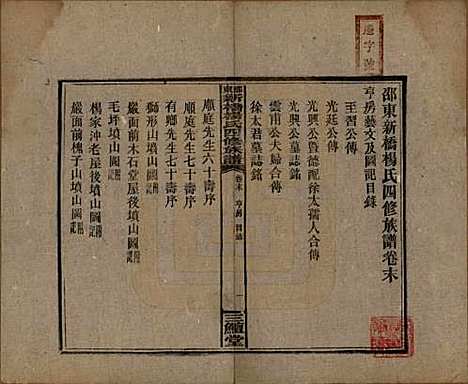 邵東新橋楊氏四修族譜卷末
亨房藝文及圖記目錄
王習公傳
光廷公傳
光興公曁德配徐太孺人合傳
光興公墓誌銘
雲甫公夫婦合傳
徐太君墓誌銘
邵東新橋楊氏四修族譜
卷末 亨房 目錄
一
三鱣堂
順庭先生六十壽序
順庭先生七十壽序
有鄉先生七十壽序
獅形山墳山圖 附記
嚴面前木石堂墳山圖
毛坪墳山圖 附記
楊家沖老屋後墳山圖 附記
嚴面前槐子山墳山圖 附記